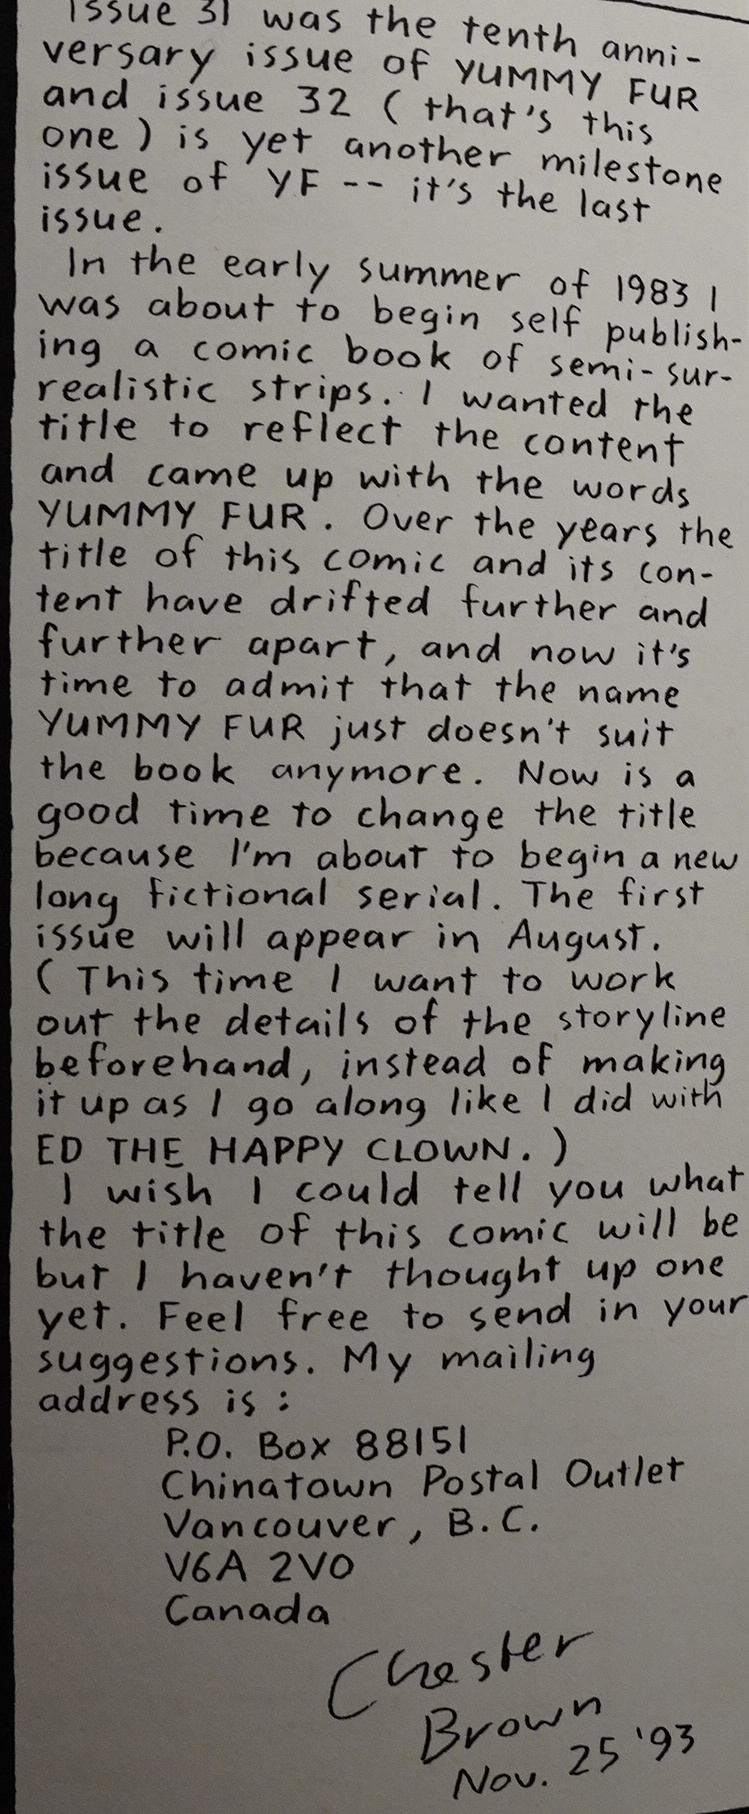 Issue 31 was the tenth anni-
versary issue of YUMMY FUR
and issue 32 (that's this
one) is yet another milestone
issue of YF -- it's the last
issue.
In the early summer of 1983 I
was about to begin self publish-
ing a comic book of semi-sur-
realistic strips. I wanted the
title to reflect the content
and came up with the words
YUMMY FUR. Over the years the
title of this comic and its con-
tent have drifted further and
further apart, and now it's
time to admit that the name
YUMMY FUR just doesn't suit
the book anymore. Now is a
good time to change the title
because I'm about to begin a new
long fictional serial. The first
issue will appear in August.
(This time I want to work
out the details of the storyline
beforehand, instead of making
it up as I go along like I did with
ED THE HAPPY CLOWN.)
I wish I could tell you what
the title of this comic will be
but I haven't thought up one
yet. Feel free to send in your
suggestions. My mailing
address is:
P.O. Box 88151
Chinatown Postal Outlet
Vancouver, B.C.
V6A 2V0
Canada
Chester
Brown
Nov. 25 '93